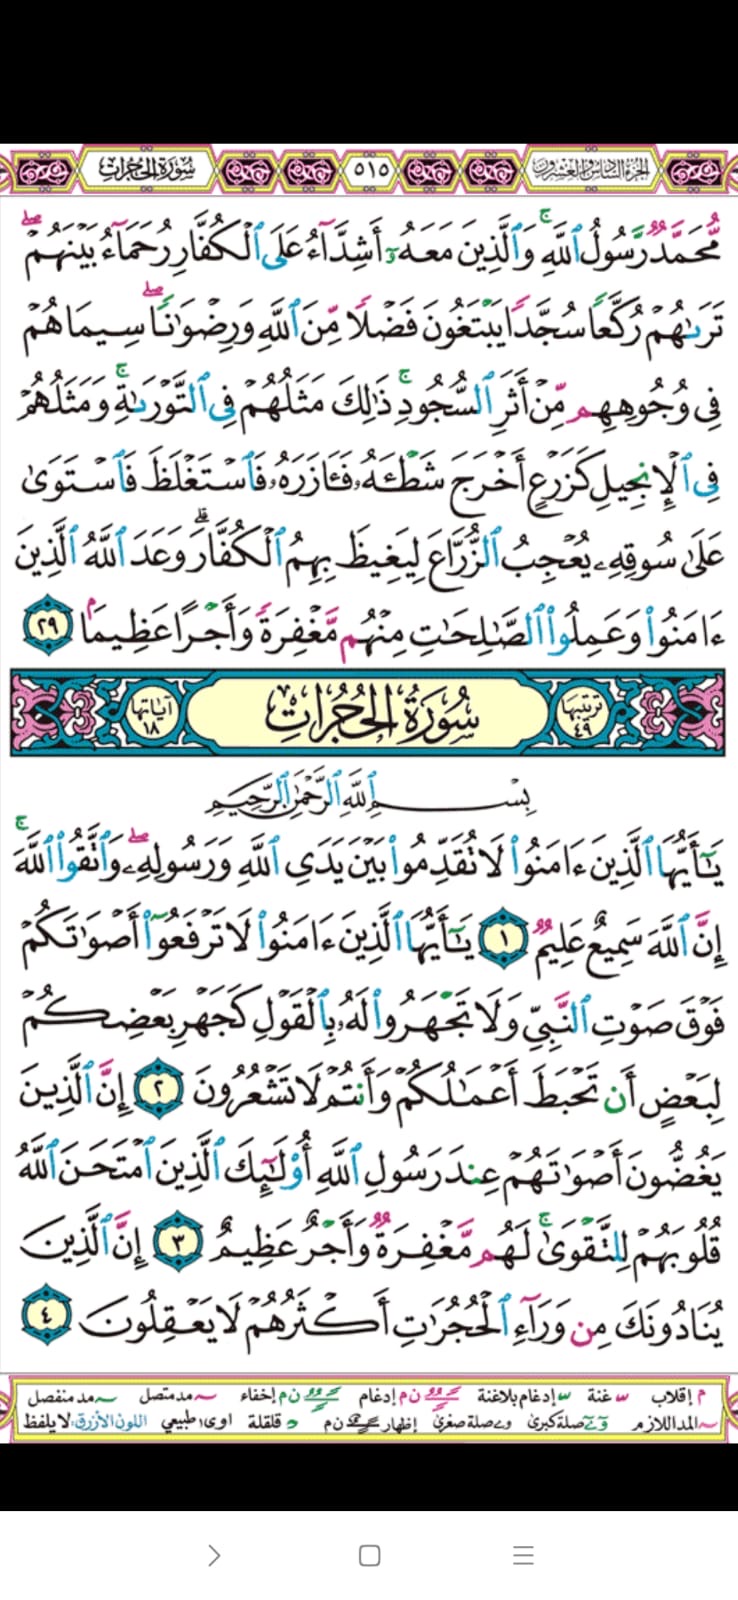 الجزء السادس والعشرون ٥١٥ سُورَةُ الحُجُرَاتِ
مُّحَمَّدٌ رَّسُولُ ٱللَّهِۚ وَٱلَّذِينَ مَعَهُۥٓ أَشِدَّآءُ عَلَى ٱلْكُفَّارِ رُحَمَآءُ بَيْنَهُمْۖ
تَرَىٰهُمْ رُكَّعًا سُجَّدًا يَبْتَغُونَ فَضْلًا مِّنَ ٱللَّهِ وَرِضْوَٰنًاۖ سِيمَاهُمْ
فِى وُجُوهِهِم مِّنْ أَثَرِ ٱلسُّجُودِۚ ذَٰلِكَ مَثَلُهُمْ فِى ٱلتَّوْرَىٰةِۚ وَمَثَلُهُمْ
فِى ٱلْإِنجِيلِ كَزَرْعٍ أَخْرَجَ شَطْـَٔهُۥ فَـَٔازَرَهُۥ فَٱسْتَغْلَظَ فَٱسْتَوَىٰ
عَلَىٰ سُوقِهِۦ يُعْجِبُ ٱلزُّرَّاعَ لِيَغِيظَ بِهِمُ ٱلْكُفَّارَۗ وَعَدَ ٱللَّهُ ٱلَّذِينَ
ءَامَنُوا۟ وَعَمِلُوا۟ ٱلصَّٰلِحَٰتِ مِنْهُم مَّغْفِرَةً وَأَجْرًا عَظِيمًۢا ٢٩
ترتيبها ٤٩ سُورَةُ الحُجُرَاتِ آياتها ١٨
بِسْمِ ٱللَّهِ ٱلرَّحْمَٰنِ ٱلرَّحِيمِ
يَٰٓأَيُّهَا ٱلَّذِينَ ءَامَنُوا۟ لَا تُقَدِّمُوا۟ بَيْنَ يَدَىِ ٱللَّهِ وَرَسُولِهِۦۖ وَٱتَّقُوا۟ ٱللَّهَۚ
إِنَّ ٱللَّهَ سَمِيعٌ عَلِيمٌ ١ يَٰٓأَيُّهَا ٱلَّذِينَ ءَامَنُوا۟ لَا تَرْفَعُوٓا۟ أَصْوَٰتَكُمْ
فَوْقَ صَوْتِ ٱلنَّبِىِّ وَلَا تَجْهَرُوا۟ لَهُۥ بِٱلْقَوْلِ كَجَهْرِ بَعْضِكُمْ
لِبَعْضٍ أَن تَحْبَطَ أَعْمَٰلُكُمْ وَأَنتُمْ لَا تَشْعُرُونَ ٢ إِنَّ ٱلَّذِينَ
يَغُضُّونَ أَصْوَٰتَهُمْ عِندَ رَسُولِ ٱللَّهِ أُو۟لَٰٓئِكَ ٱلَّذِينَ ٱمْتَحَنَ ٱللَّهُ
قُلُوبَهُمْ لِلتَّقْوَىٰۚ لَهُم مَّغْفِرَةٌ وَأَجْرٌ عَظِيمٌ ٣ إِنَّ ٱلَّذِينَ
يُنَادُونَكَ مِن وَرَآءِ ٱلْحُجُرَٰتِ أَكْثَرُهُمْ لَا يَعْقِلُونَ ٤
م إقلاب غنة إدغام بلاغنة ن م إدغام ن م إخفاء مد متصل مد منفصل
المد اللازم صلة كبرى صلة صغرى إظهار ن م قلقلة اوى طبيعي اللون الأزرق لا يلفظ